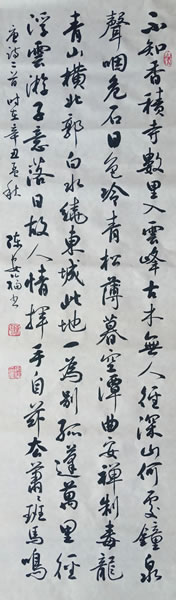 不知香積寺數里入雲峰古木無人徑深山何處鐘泉
聲咽危石日色冷青松薄暮空潭曲安禪制毒龍
青山橫北郭白水繞東城此地一為別孤蓬萬里征
浮雲游子意落日故人情揮手自茲去蕭〻班馬鳴
唐詩二首時在辛丑孟秋
陳安福書